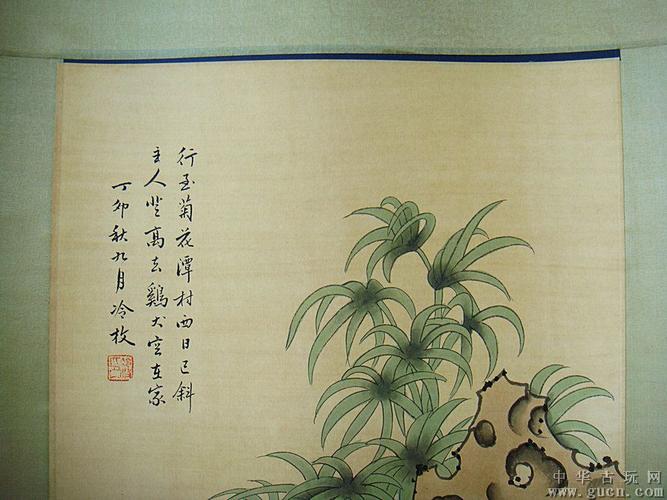 行至菊花潭村西日已斜
主人登高去鷄犬空在家
丁卯秋九月冷枚
中华古玩网
www.gucn.com